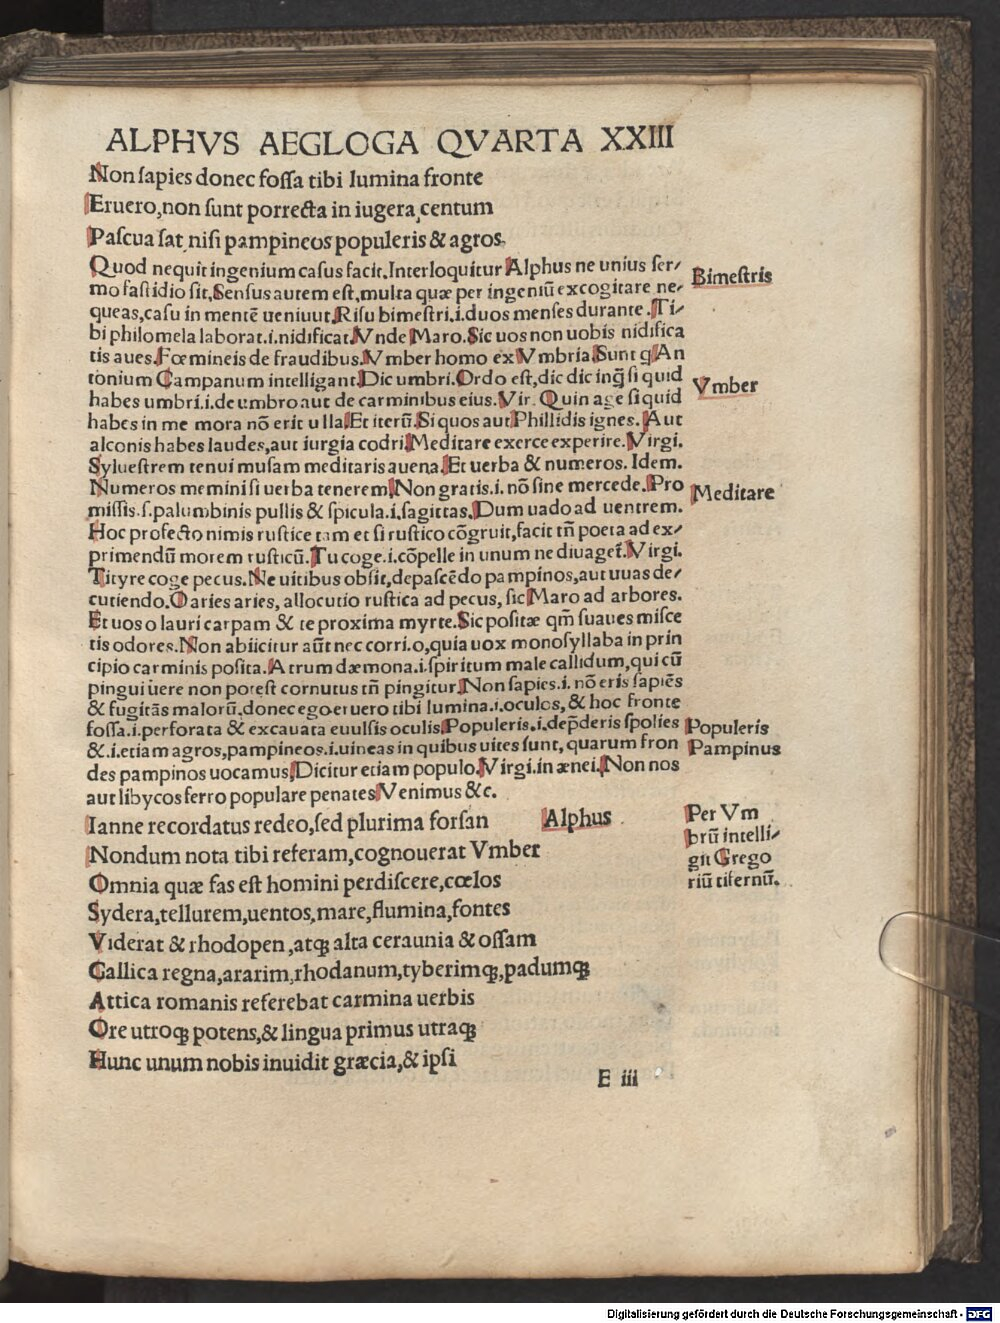 ALPHVS AEGLOGA QVARTA XXIII
Non ſapies donec foſſa tibi lumina fronte
Eruero,non ſunt porrecta in iugera centum
Paſcua ſat niſi pampineos populeris & agros.
Quod nequit ingenium caſus facit.Interloquitur Alphus ne unius ſer⸗
mo faſtidio ſit,Senſus autem eſt,multa quæ per ingeniū excogitare ne⸗
queas,caſu in mentē ueniuut.Riſu bimeſtri.i.duos menſes durante.Ti⸗
bi philomela laborat.i.nidificat.Vnde Maro.Sic uos non uobis nidifica
tis aues.Fœmineis de fraudibus.Vmber homo ex Vmbria.Sunt q An
tonium Campanum intelligant.Dic umbri.Ordo eſt,dic dic inq̄ ſi quid
habes umbri.i.de umbro aut de carminibus eius.Vir. Quin age ſi quid
habes in me mora nō erit ulla.Et iterū.Si quos aut Phillidis ignes.Aut
alconis habes laudes,aut iurgia codri.Meditare exerce experire.Virgi.
Sylueſtrem tenui muſam meditaris auena.Et uerba & numeros. Idem.
Numeros memini ſi uerba tenerem.Non gratis.i. nō ſine mercede.Pro
miſſis.ſ.palumbinis pullis & ſpicula.i.ſagittas.Dum uado ad uentrem.
Hoc profecto nimis ruſtice tam et ſi ruſtico cōgruit,facit tñ poeta ad ex⸗
primendū morem ruſticū.Tu coge.i.cōpelle in unum ne diuaget̄.Virgi.
Tityre coge pecus.Ne uitibus obſit,depaſcēdo pampinos,aut uuas de⸗
cutiendo.O aries aries, allocutio ruſtica ad pecus, ſic Maro ad arbores.
Et uos o lauri carpam & te proxima myrte.Sic poſitæ qm̄ ſuaues miſce
tis odores.Non abiicitur aūt nec corri.o,quia uox monoſyllaba in prin
cipio carminis poſita.Atrum dæmona.i.ſpiritum male callidum,qui cū
pingui uere non poteſt cornutus tñ pingitur.Non ſapies.i. nō eris ſapiēs
& fugitās malorū,donec ego eruero tibi lumina.i.oculos,& hoc fronte
foſſa.i.perforata & excauata euulſis oculis.Populeris.i.dep̄deris ſpolies
&.i.etiam agros,pampineos.i.uineas in quibus uites ſunt,quarum fron
des pampinos uocamus.Dicitur etiam populo.Virgi.in ænei.Non nos
aut libycos ferro populare penates Venimus &c.
Bimeſtris
Vmber
Meditare
Populeris
Pampinus
Ianne recordatus redeo,ſed plurima forſan Alphus
Nondum nota tibi referam,cognouerat Vmber
Omnia quæ fas eſt homini perdiſcere,cœlos
Sydera,tellurem,uentos,mare,flumina,fontes
Viderat & rhodopen,atqꝫ alta ceraunia & oſſam
Gallica regna,ararim,rhodanum,tyberimqꝫ,padumqꝫ
Attica romanis referebat carmina uerbis
Ore utroqꝫ potens,& lingua primus utraqꝫ
Hunc unum nobis inuidit græcia,& ipſi
Per Vm
brū intelli⸗
git Grego
riū tifernū.
E iii
Digitalisierung gefördert durch die Deutsche Forschungsgemeinschaft - DFG